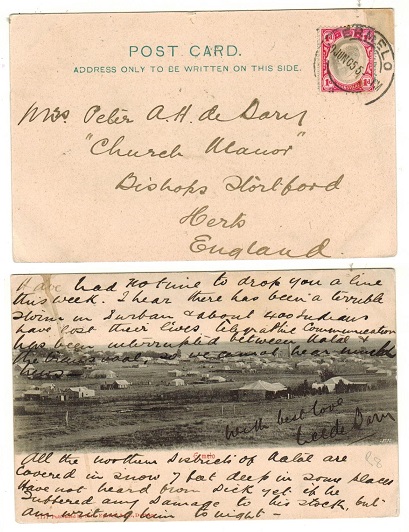 POST CARD.
ADDRESS ONLY TO BE WRITTEN ON THIS SIDE.
ERMELO
JUN 05
Mrs. Peter A.H. de
"Church Manor"
Bishops Stortford
Herts
England.
Have had not time to drop you a line
this week. I hear there has been a terrible
storm in Durban & about 400 Indians
have lost their lives, telegraphic communication
has been interrupted between Natal &
the Transvaal, so we cannot hear much
news.
with best love
All the northern Districts of Natal are
covered in snow 7 feet deep in some places
Have not heard from Dick yet if he
suffered any Damage to his stock, but
am writing him to night -